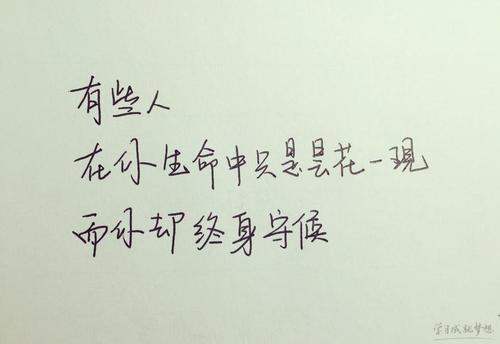 有些人
在你生命中只是昙花一现
而你却终身守候
学习成就梦想